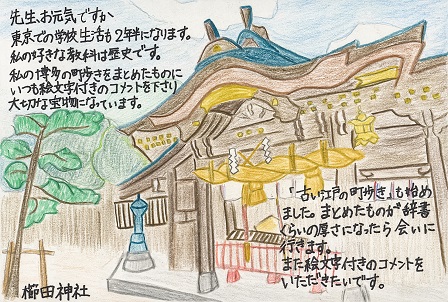 先生、お元気ですか
東京での学校生活も2年半になります。
私の好きな教科は歴史です。
私の博多の町歩きをまとめたものに
いつも絵文字付きのコメントを下さり
大切な宝物になっています。
「古い江戸の町歩き」も始め
ました。まとめたものが辞書
くらいの厚さになったら会いに
行きます。
また絵文字付きのコメントを
いただきたいです。
櫛田神社